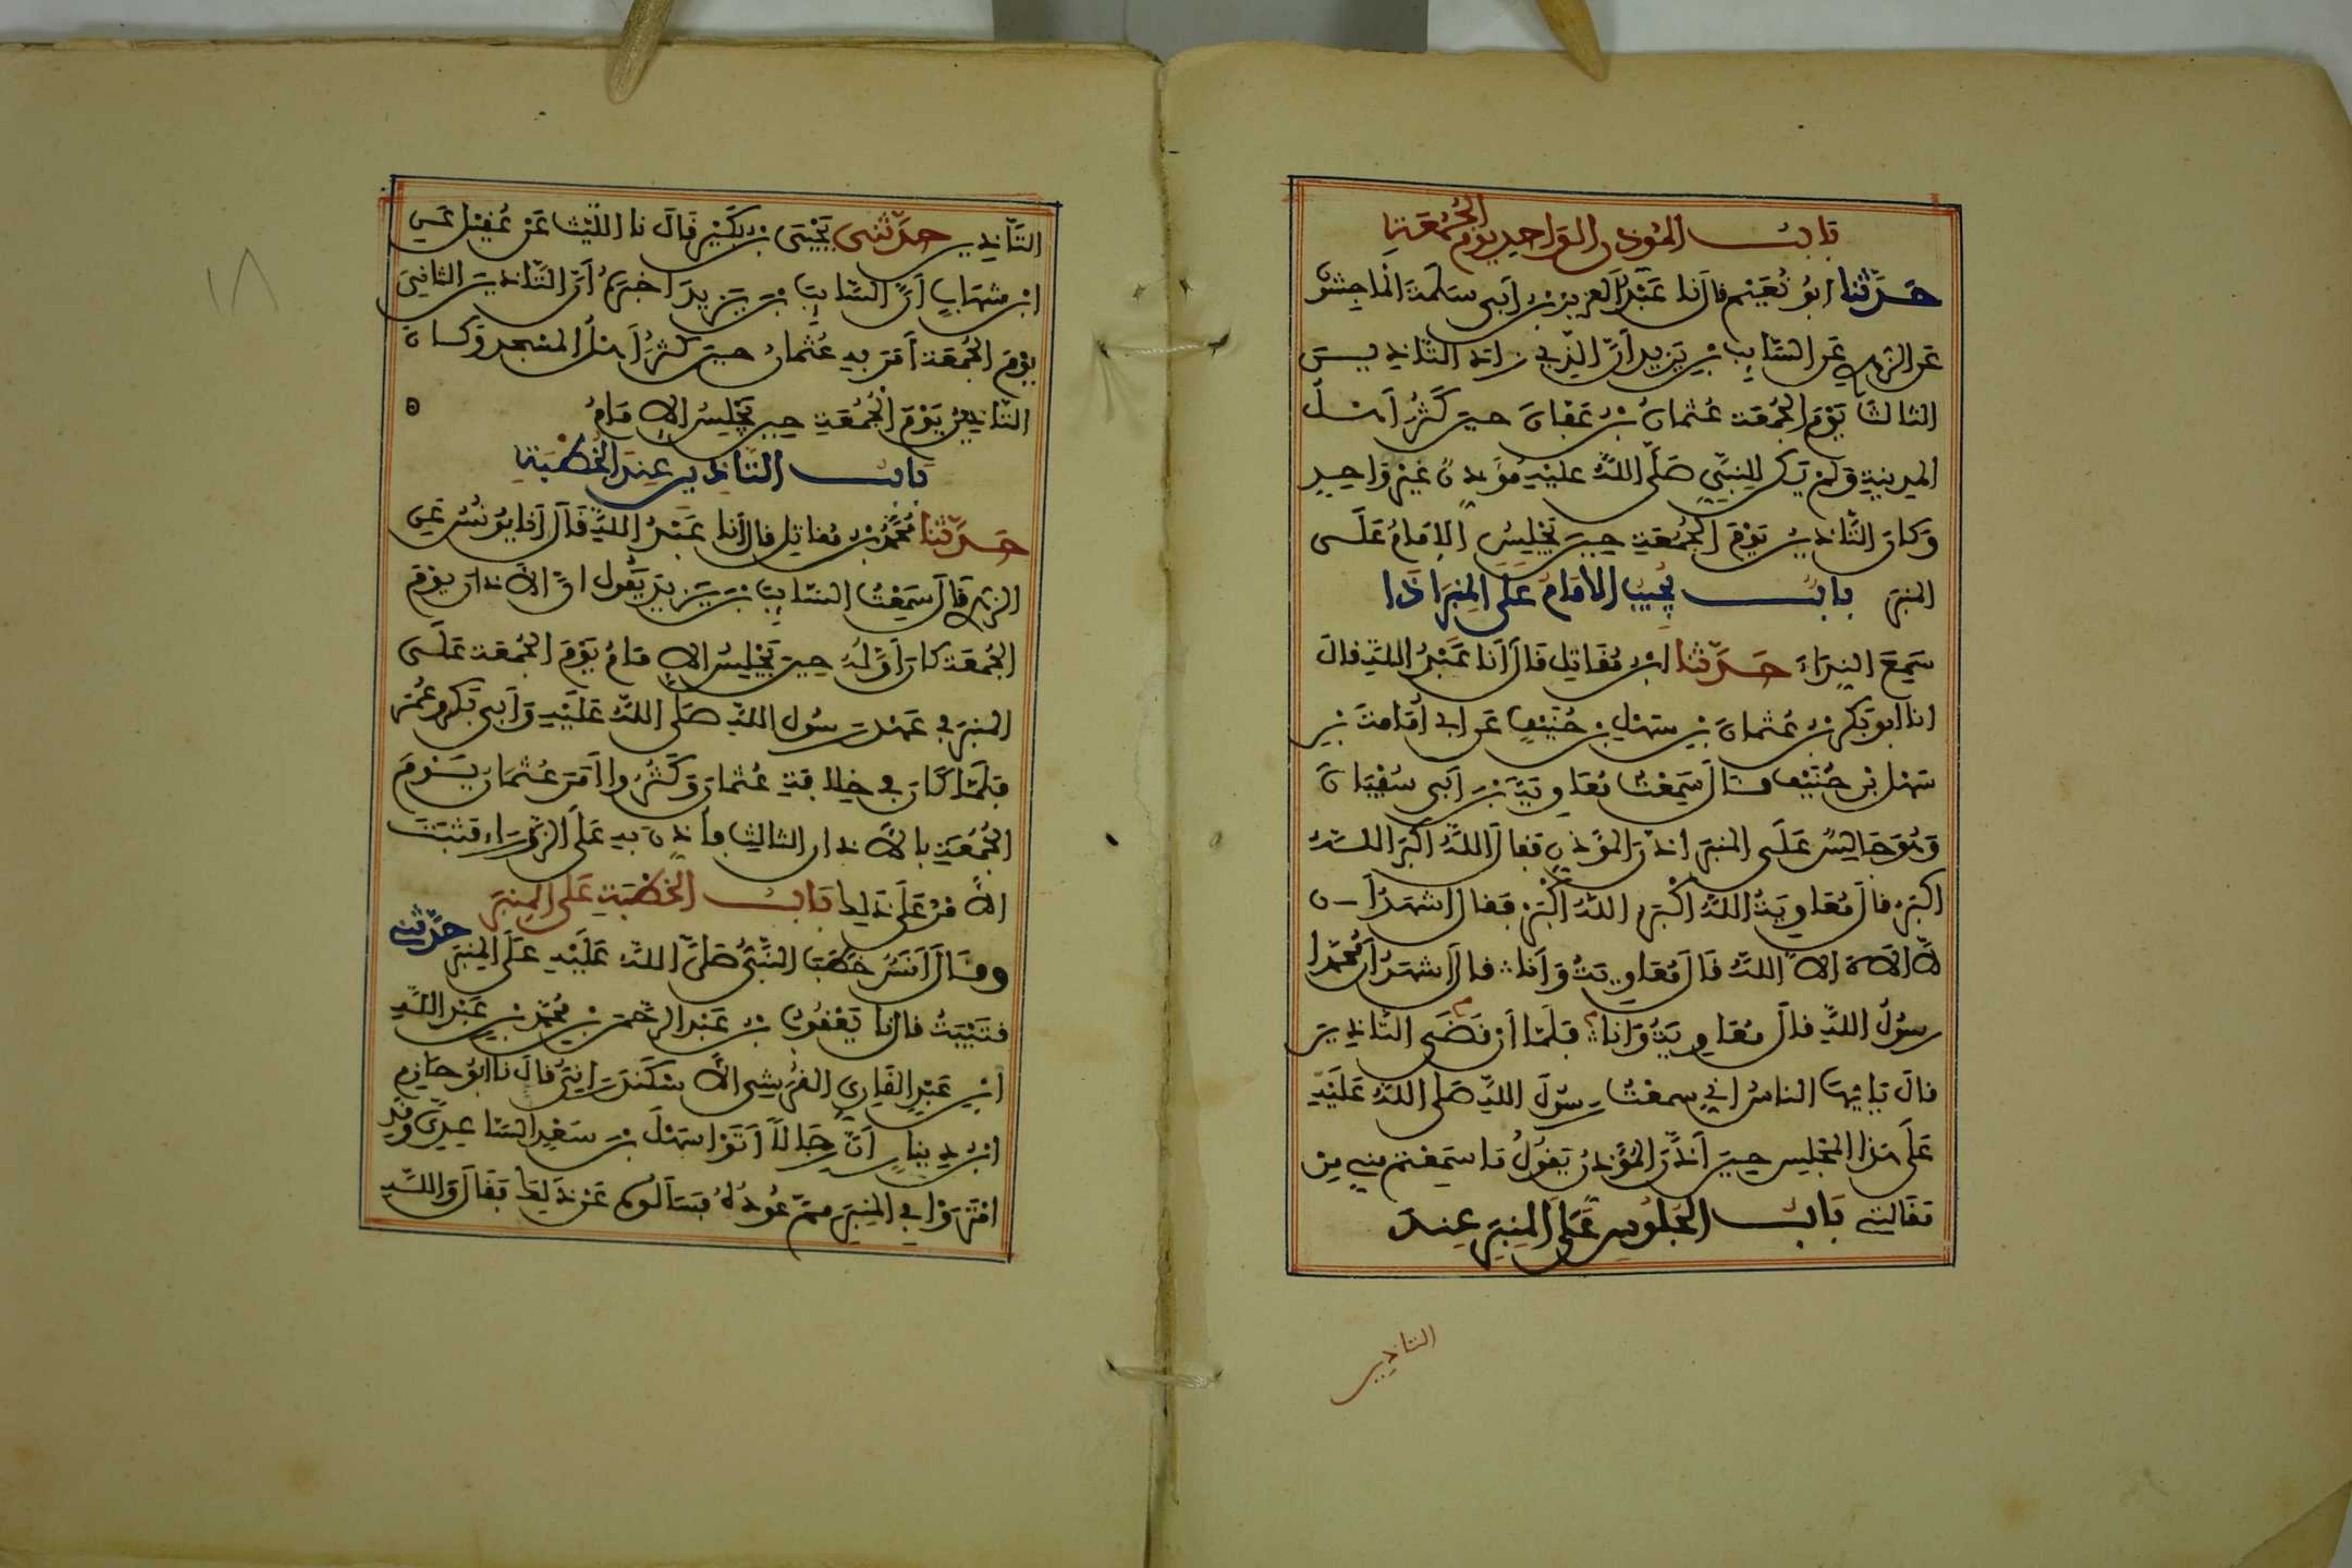 بَابُ المُوذن الوَاحِدِ يَوْمَ الجُمُعَةِ
حَدَّثنا ابُو نُعَيْم قال نا عَبْدُ العزيز بْنُ أبى سَلَمَةَ المَاجِشُون
عَن الزهري عَن السَّايِبِ بْنِ يَزيدَ أنَّ الذِي زادَ التَّاذِيــنَ
الثالثَ يَوْمَ الجُمُعَة عُثمانُ بْنُ عَفانَ حينَ كَثُرَ أهــلُ
المدينَةِ وَلمْ يَكن للِنبِيِّ صَلَّى اللهُ عليْهِ مُوَذنٌ غيْرَ وَاحِدٍ
وَكانَ التَّاذِينُ يَوْمَ الجُمُعَةِ حِينَ يَجْلِسُ الإمَامُ عَلَــى
المنبر بابُ يُجِيبُ الامَامُ عَلى المِنبَر اذَا
سَمِعَ النِدَاءَ حَدَّثنا ابْنُ مُقَاتِل قَالَ أنا عَبْدُ اللهِ قالَ
انا ابو بَكر بْنُ عُثمانَ بْنِ سَهْلِ بْنِ حُنَيْفٍ عَن ابى أمَامَةَ بْنِ
سَهْل بْن حُنَيْف قال سَمِعْتُ مُعَاويَةَ بْنَ أبى سُفْيَانَ
وَهُوَ جَالِسٌ عَلَى المنبَر اذنَ المؤَذِن فقالَ اللهُ أكبَر اللــهُ
اكبَر قالَ مُعَاويَةُ اللهُ أكْبَر اللهُ أكْبَرْ فَقَال اشهَدُ أَن
لا الاه الا اللهُ قَالَ مُعَاويَةُ وَأنا قالَ أشهَدُ أن مُحَمَّدا
رسُولُ اللهِ قالَ مُعَاوِيَةُ وَانا فَلَمَّا أنْ قَضَى التَّاذِينَ
قالَ يَايُّهَا الناسُ اني سمعْتُ رسُولَ اللهِ صَلى اللهُ عَلَيْهِ
عَلَى هَذا المَجْلِسِ حِينَ أَذَّنَ المُؤَذنُ يَقُولُ مَا سَمِعْتمْ مِنيِ مِنْ
مَقَالَتي بَابُ الجُلُوسِ عَلى المِنبَر عِندَ
التاذين
التَّاذِين حدَّثنى يَحْيَى بْنُ بُكَيْر قَالَ نا اللَّيْثُ عَنْ عُقيْل عَن
ابْن شهَابٍ أنَّ السَّايِبَ بْنَ يَزيدَ اخبَرَهُ أنَّ التَّاذينَ الثانِيَ
يَوْمَ الجُمُعَة أمَرَ بِهِ عُثمانُ حينَ كثرَ أهلُ المَسْجِد وَكــانَ
التَّاذِينُ يَوْمَ الجُمُعَةِ حِينَ يَجْلِسُ الإمَامُ
بَابُ التَّاذِين عِندَ الخُطبَةِ
حَدَّثنا مُحَمَّدُ بْنُ مُقاتِل قال أنا عَبْدُ اللهِ قَالَ أنا يُونُسُ عَن
الزهري قَالَ سَمِعْتُ السَّايبَ بْنَ يَزيدَ يَقُول انَّ الأذانَ يَوْمَ
الجُمُعَة كانَ أوَّلهُ حِينَ يَجْلِسُ الإمَامُ يَوْمَ الجُمُعَة عَلَــى
المنبَر في عَهْد رسُول اللهِ صَلى اللهُ عَلَيْهِ وَأَبى بَكر وَعُمَر
فلَمَّا كَانَ في خِلافَةِ عُثمانَ وَكَثرُوا أَمَرَ عُثمَانُ يَــوْمَ
الجُمُعَةِ بالأذان الثالِثِ فأذنَ بِهِ عَلَى الزَّوْرَاء فَثبَتَ
الأمْرُ عَلَى ذَلِكَ بَابُ الخُطبَةِ عَلى المِنبَر
وقــالَ أنَسٌ خَطَبَ النَّبِىُّ صَلى اللهُ عَلَيْهِ عَلَى المِنبَر حدَّثني
قتَيْبَةُ قال نا يَعْقُوبُ بْنُ عَبْد الرحْمَن بْنِ مُحَمَّد بْن عَبْدِ اللهِ
ابْنِ عَبْدِ القَارِي القُرَيشِى الأسْكَندَرَانِيُّ قالَ نا ابُو حَازِم
ابْنُ دِينارٍ أنَّ رجَالاً أتَوْا سَهْلَ بْنَ سَعْدِ السَّاعِدِىَّ وقدِ
امْترَوْا فِي المِنبَر مِمَّ عُودُهُ فسَألوهُ عَنْ ذَلِكَ فقَالَ وَاللهِ
١٨